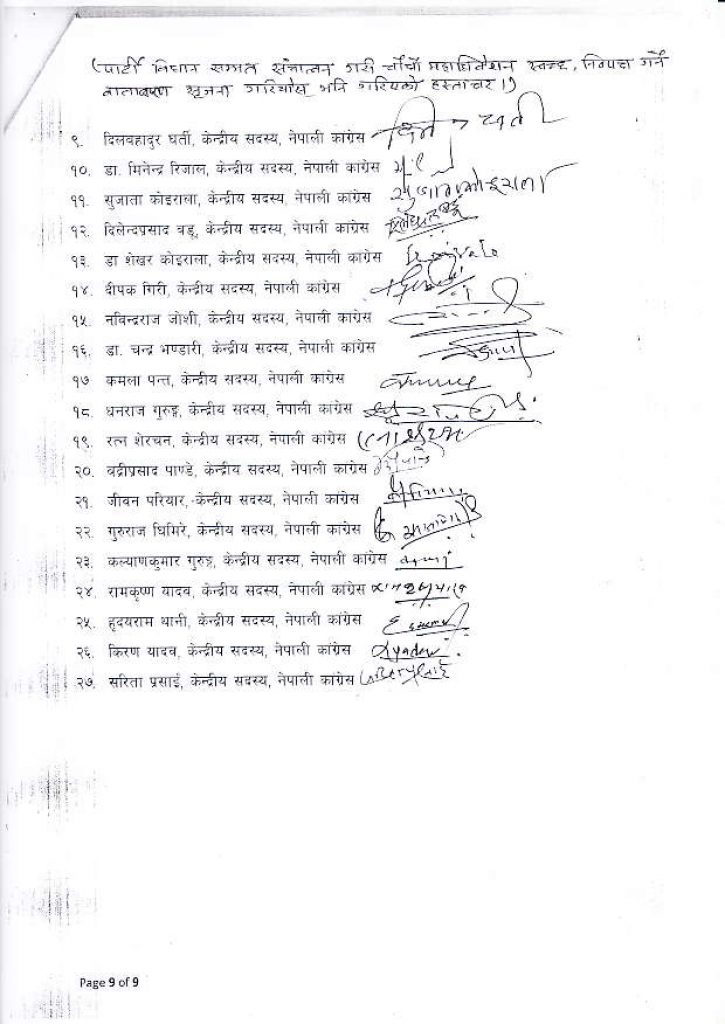 (पार्टी विधान सम्मत संचालन गरी चौधौं महाधिवेशन स्वच्छ, निष्पक्ष गर्ने
वातावरण सृजना गरियोस भनि गरिएको हस्ताक्षर ।)
९. दिलबहादुर घर्ती, केन्द्रीय सदस्य, नेपाली कांग्रेस
१०. डा. मिनेन्द्र रिजाल, केन्द्रीय सदस्य, नेपाली कांग्रेस
११. सुजाता कोइराला, केन्द्रीय सदस्य, नेपाली कांग्रेस सुजाता कोइराला
१२. दिलेन्द्रप्रसाद बडू, केन्द्रीय सदस्य, नेपाली कांग्रेस
१३. डा शेखर कोइराला, केन्द्रीय सदस्य, नेपाली कांग्रेस
१४. दीपक गिरी, केन्द्रीय सदस्य, नेपाली कांग्रेस
१५. नविन्द्रराज जोशी, केन्द्रीय सदस्य, नेपाली कांग्रेस
१६. डा. चन्द्र भण्डारी, केन्द्रीय सदस्य, नेपाली कांग्रेस
१७ कमला पन्त, केन्द्रीय सदस्य, नेपाली कांग्रेस
१८ धनराज गुरुङ्ग, केन्द्रीय सदस्य, नेपाली कांग्रेस
१९. रत्न शेरचन, केन्द्रीय सदस्य, नेपाली कांग्रेस
२०. वद्रीप्रसाद पाण्डे, केन्द्रीय सदस्य, नेपाली कांग्रेस
२१. जीवन परियार, केन्द्रीय सदस्य, नेपाली कांग्रेस
२२. गुरुराज घिमिरे, केन्द्रीय सदस्य, नेपाली कांग्रेस
२३. कल्याणकुमार गुरुङ्ग, केन्द्रीय सदस्य, नेपाली कांग्रेस
२४. रामकृष्ण यादव, केन्द्रीय सदस्य, नेपाली कांग्रेस
२५. हृदयराम थानी, केन्द्रीय सदस्य, नेपाली कांग्रेस
२६. किरण यादव, केन्द्रीय सदस्य, नेपाली कांग्रेस
२७. सरिता प्रसाई, केन्द्रीय सदस्य, नेपाली कांग्रेस
Page 9 of 9